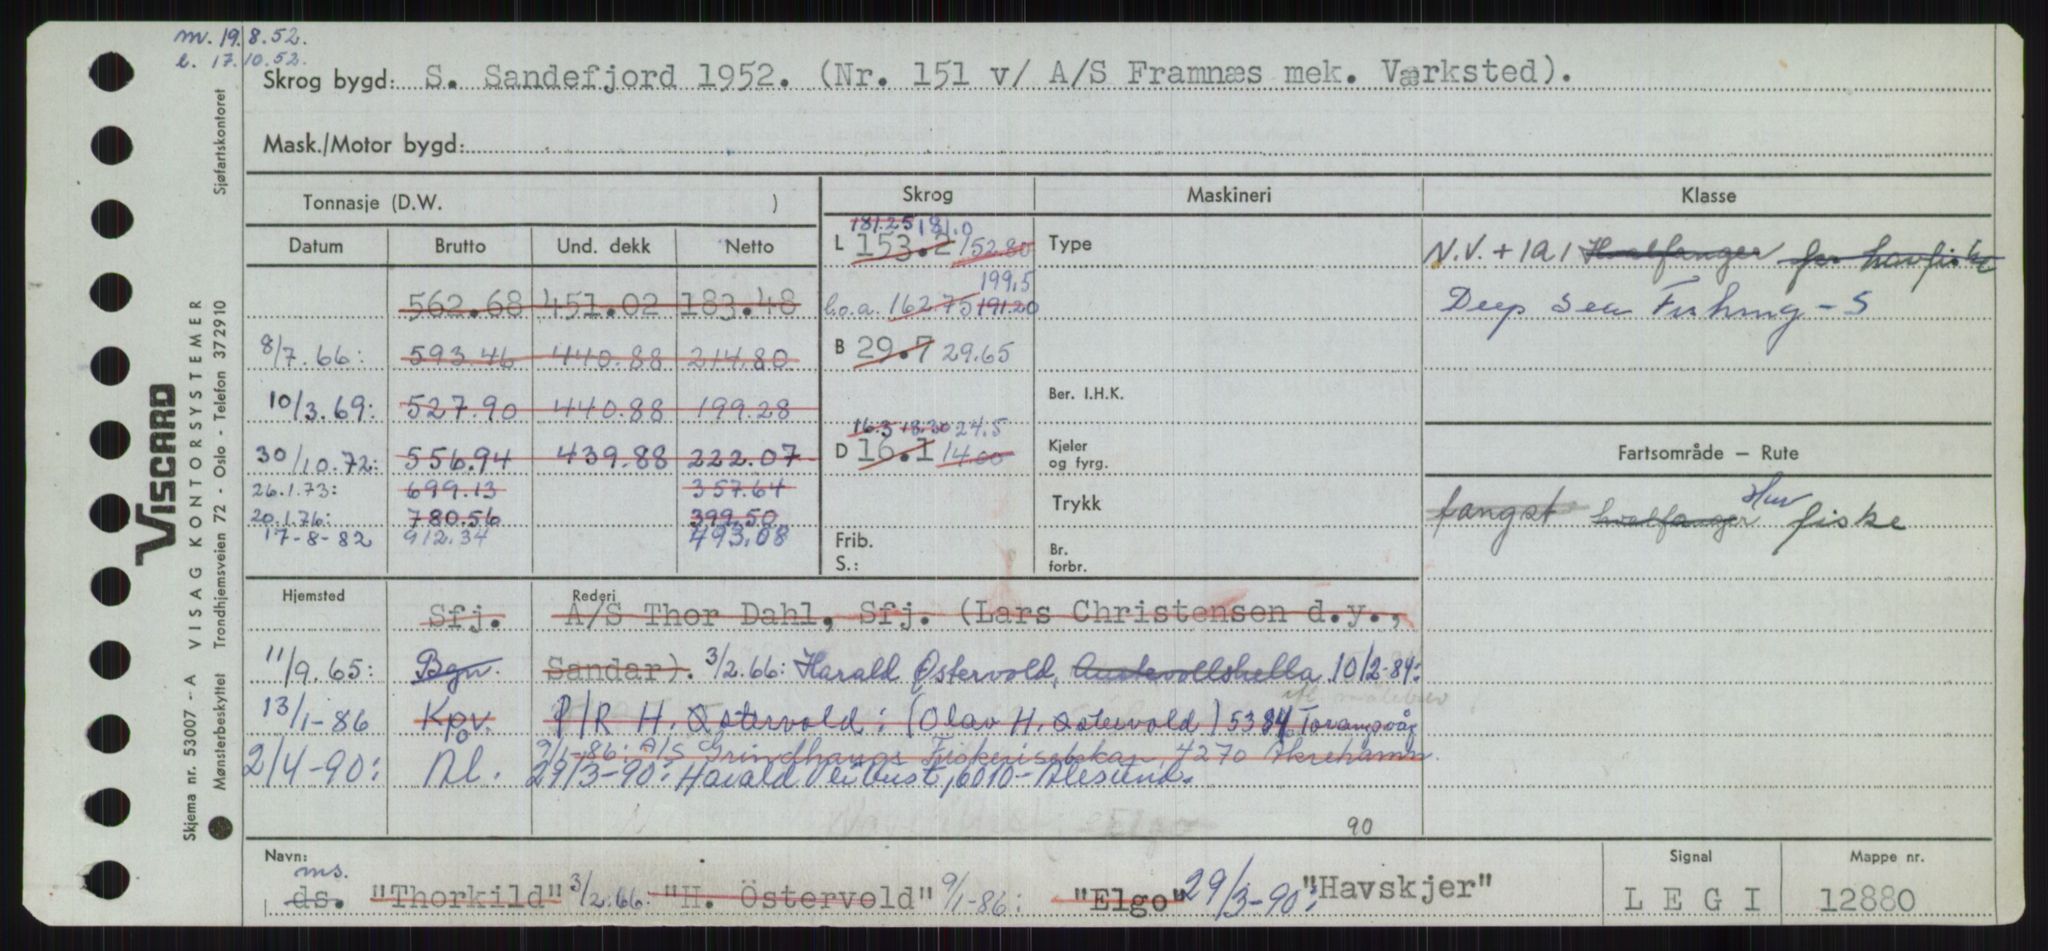 m. 19.8.52.
l. 17.10.52.
Skrog bygd: S. Sandefjord 1952. (Nr. 151 v/ A/S Framnæs mek. Værksted).
Mask./Motor bygd:
Tonnasje (D.W. )
Datum Brutto Und. dekk Netto
562.68 451.02 183.48
8/7.66: 593.46 440.88 214.80
10/3.69: 527.90 440.88 199.28
30/10.72: 556.94 439.88 222.07
26.1.73: 699.13 357.64
20.1.76: 780.56 399.50
17-8-82 912.34 493.08
Skrog
181.25 181.0
L 153.2 152.80
199,5
l.o.a. 162.75 191.20
B 29.7 29.65
16.3 18.30 24.5
D 16.1 14.00
Frib.
S.:
Maskineri
Type
Ber. I.H.K.
Kjeler
og fyrg.
Trykk
Br.
forbr.
Klasse
N.V. + 1A1 Hvalfanger for havfiske
Deep Sea Fishing - S
Fartsområde – Rute
Hav
fangst hvalfanger fiske
Hjemsted Rederi
Sfj. A/S Thor Dahl, Sfj. (Lars Christensen d.y.,
11/9.65: Bgn. Sandar). 3/2.66: Harald Østervold, Austevollshella 10/2-84:
ifl målebrev
13/1-86 Kpv. P/R H. Østervold: (Olav H. Østervold) 5384 Torangsvåg
9/1-86: A/S Grindhaugs Fiskeriselskap, 4270 Åkrehamn.
2/4-90: Ål. 29/3-90: Harald Leibust, 6010-Ålesund.
Elgo
90
Navn:
ms.
ds. "Thorkild" 3/2.66: "H. Östervold" 9/1-86: "Elgo" 29/3-90: "Havskjer"
Signal
L E G I
Mappe nr.
12880
VISCARD
VISAG KONTORSYSTEMER
Skjema nr. 53007 - A
Mønsterbeskyttet Trondhjemsveien 72 - Oslo - Telefon 372910 Sjøfartskontoret